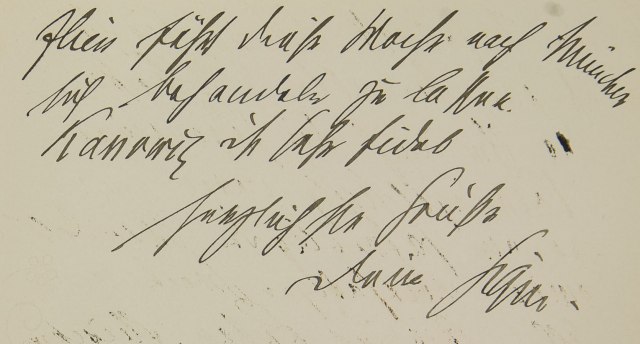 fährt diese Woche nach München
sich behandeln zu lassen.
Kanowitz ist sehr fidel
herzlichste Grüße
Dein